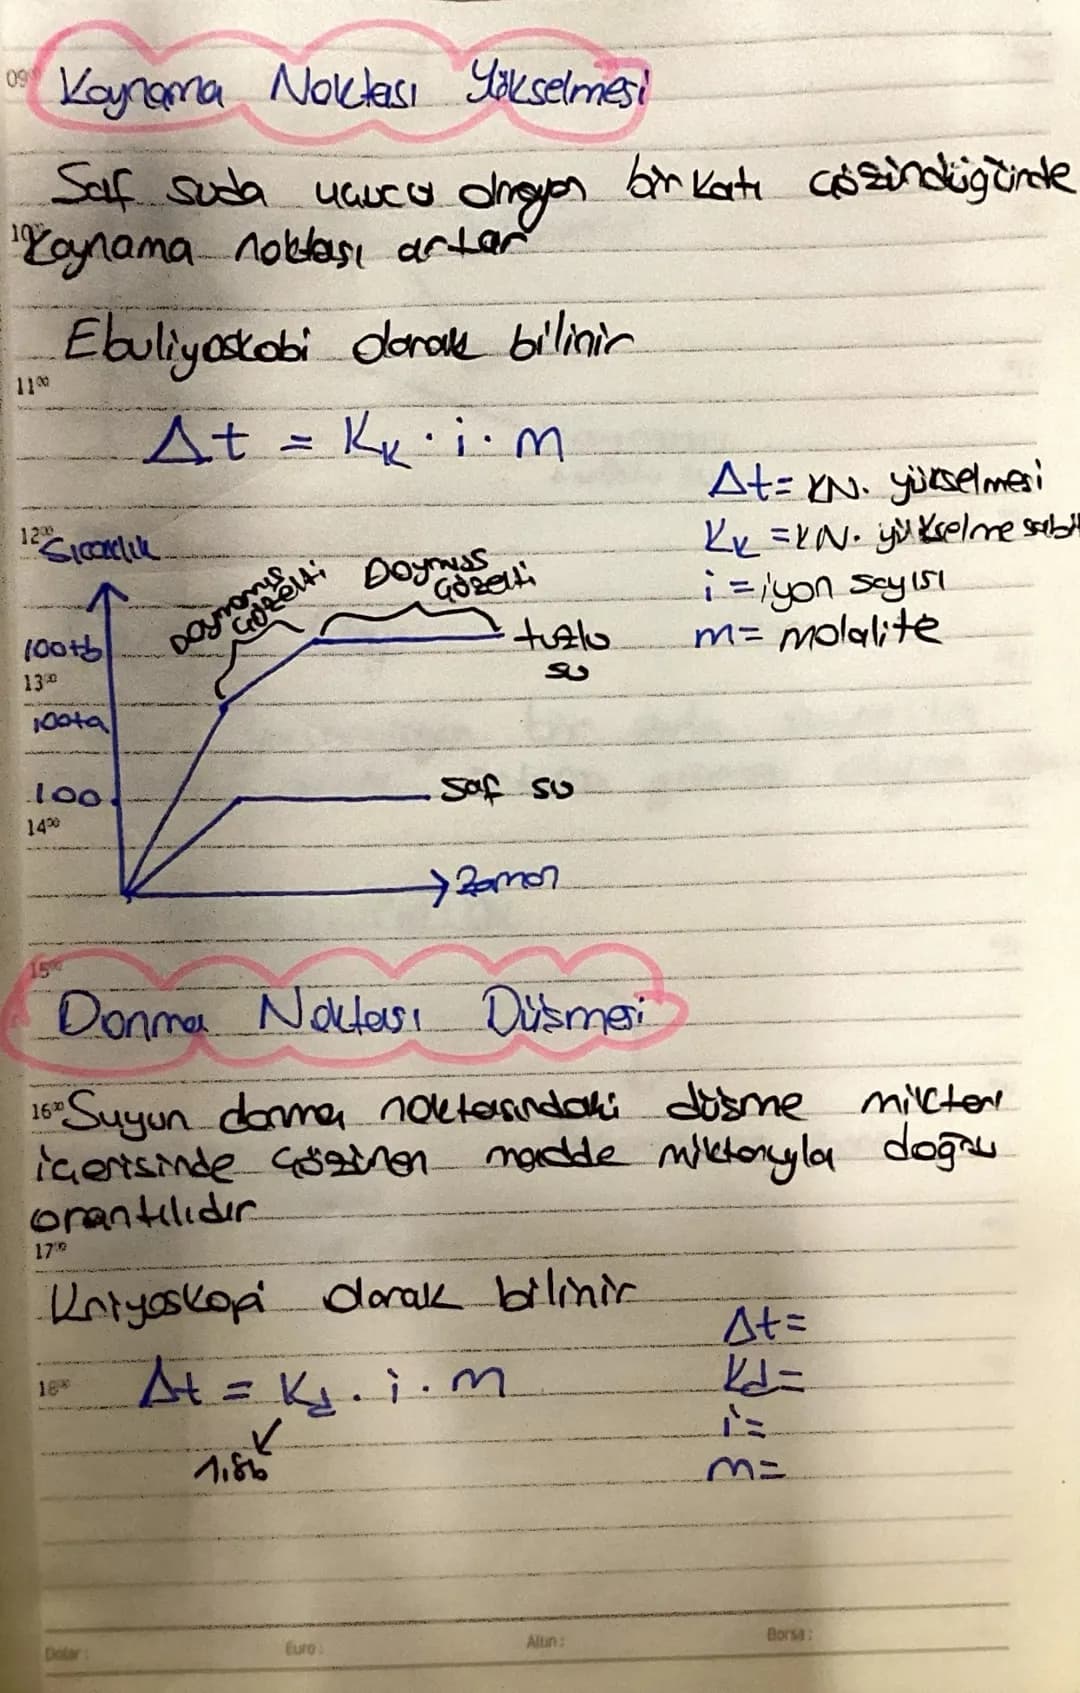 09⁰⁰ Kaynama Noktası Yükselmesi
Saf suda uçucu olmayan bir katı çözündüğünde
10⁰⁰ Kaynama noktası artar
Ebuliyoskobi olarak bilinir
11⁰⁰
Δt = Kₖ · i · m
Δt = KN. yükselmesi
Kₖ = KN. yükselme sabit
i = iyon sayısı
m = molalite
12⁰⁰ Sıcaklık
Doymamış çözelti
Doymuş çözelti
100+b
tuzlu su
13⁰⁰
100+a
100
saf su
14⁰⁰
Zaman
15⁰⁰
Donma Noktası Düşmesi
16⁰⁰ Suyun donma noktasındaki düşme miktarı
içerisinde çözünen madde miktarıyla doğru
orantılıdır
17⁰⁰
Kriyoskopi olarak bilinir
18⁰⁰ Δt = K_d . i . m
1,86
Δt =
Kd =
i =
m =
Dolar :
Euro :
Altın :
Borsa :